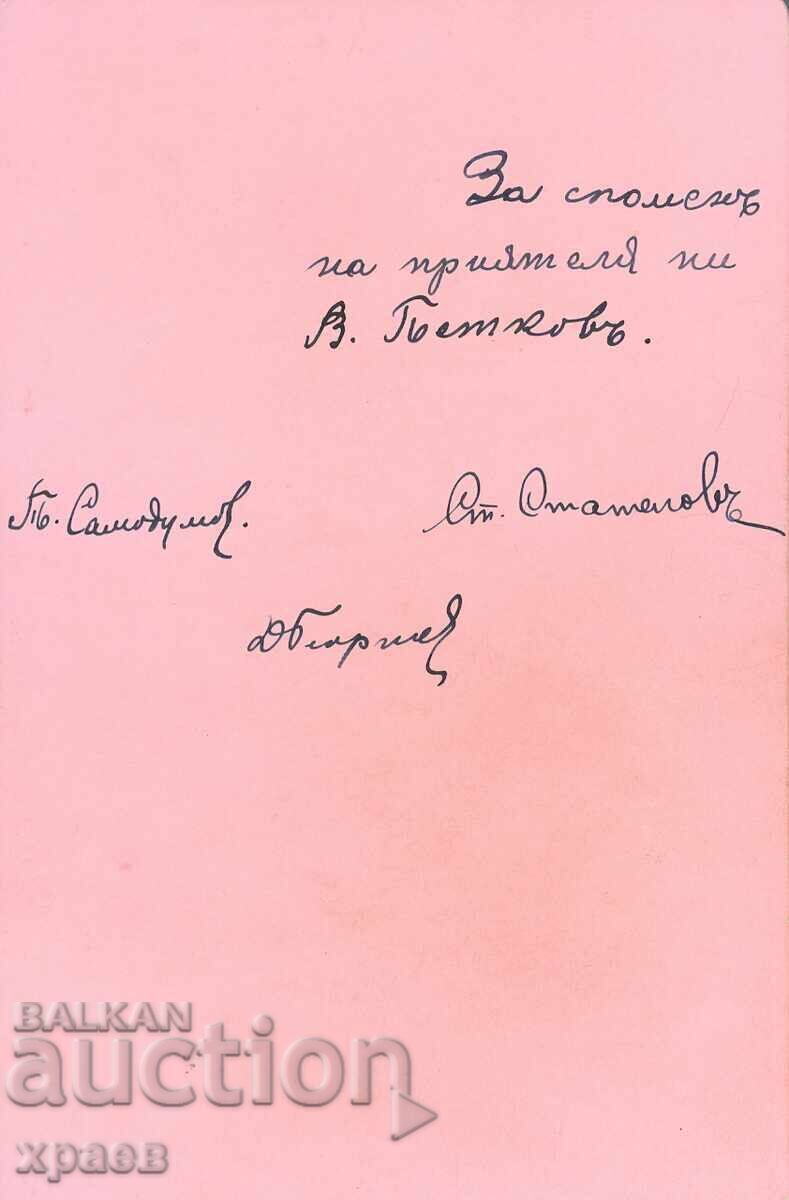 За споменъ
на приятеля ни
В. Петковъ.
П. Самодумов.
Ст. Стателовъ
ДГеоргиев
BALKAN
auction
храев